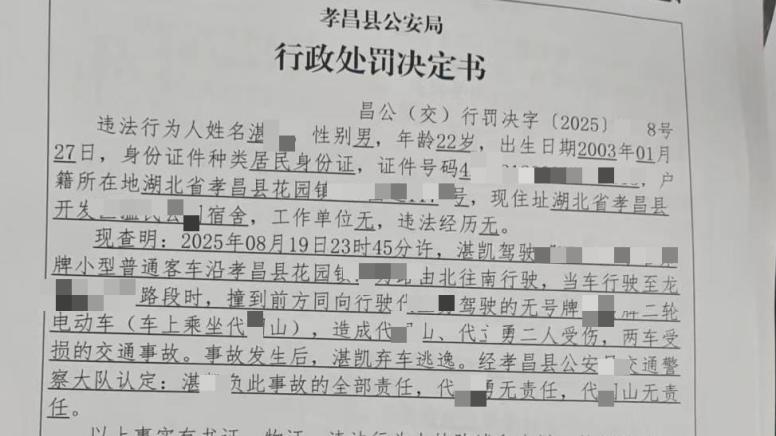 孝昌县公安局
行政处罚决定书
昌公（交）行罚决字〔2025〕 8号
违法行为人姓名湛 ，性别男，年龄22岁，出生日期2003年01月
27日，身份证件种类居民身份证，证件号码4 ，户
籍所在地湖北省孝昌县花园镇 号，现住址湖北省孝昌县
开发 宿舍，工作单位无，违法经历无。
现查明：2025年08月19日23时45分许，湛凯驾驶
牌小型普通客车沿孝昌县花园镇 由北往南行驶，当车行驶至龙
路段时，撞到前方同向行驶代 驾驶的无号牌 牌二轮
电动车（车上乘坐代 山），造成代 山、代 勇二人受伤，两车受
损的交通事故。事故发生后，湛凯弃车逃逸。经孝昌县公安 交通警
察大队认定：湛 负此事故的全部责任，代 勇无责任，代 山无责
任。